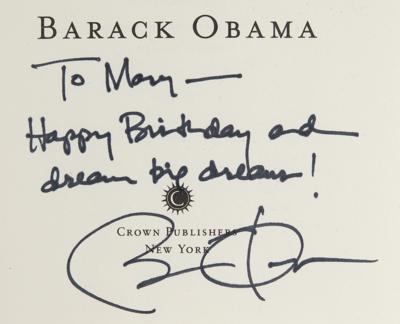 BARACK OBAMA
To Mary —
Happy Birthday and
dream big dreams!
CROWN PUBLISHERS
NEW YORK